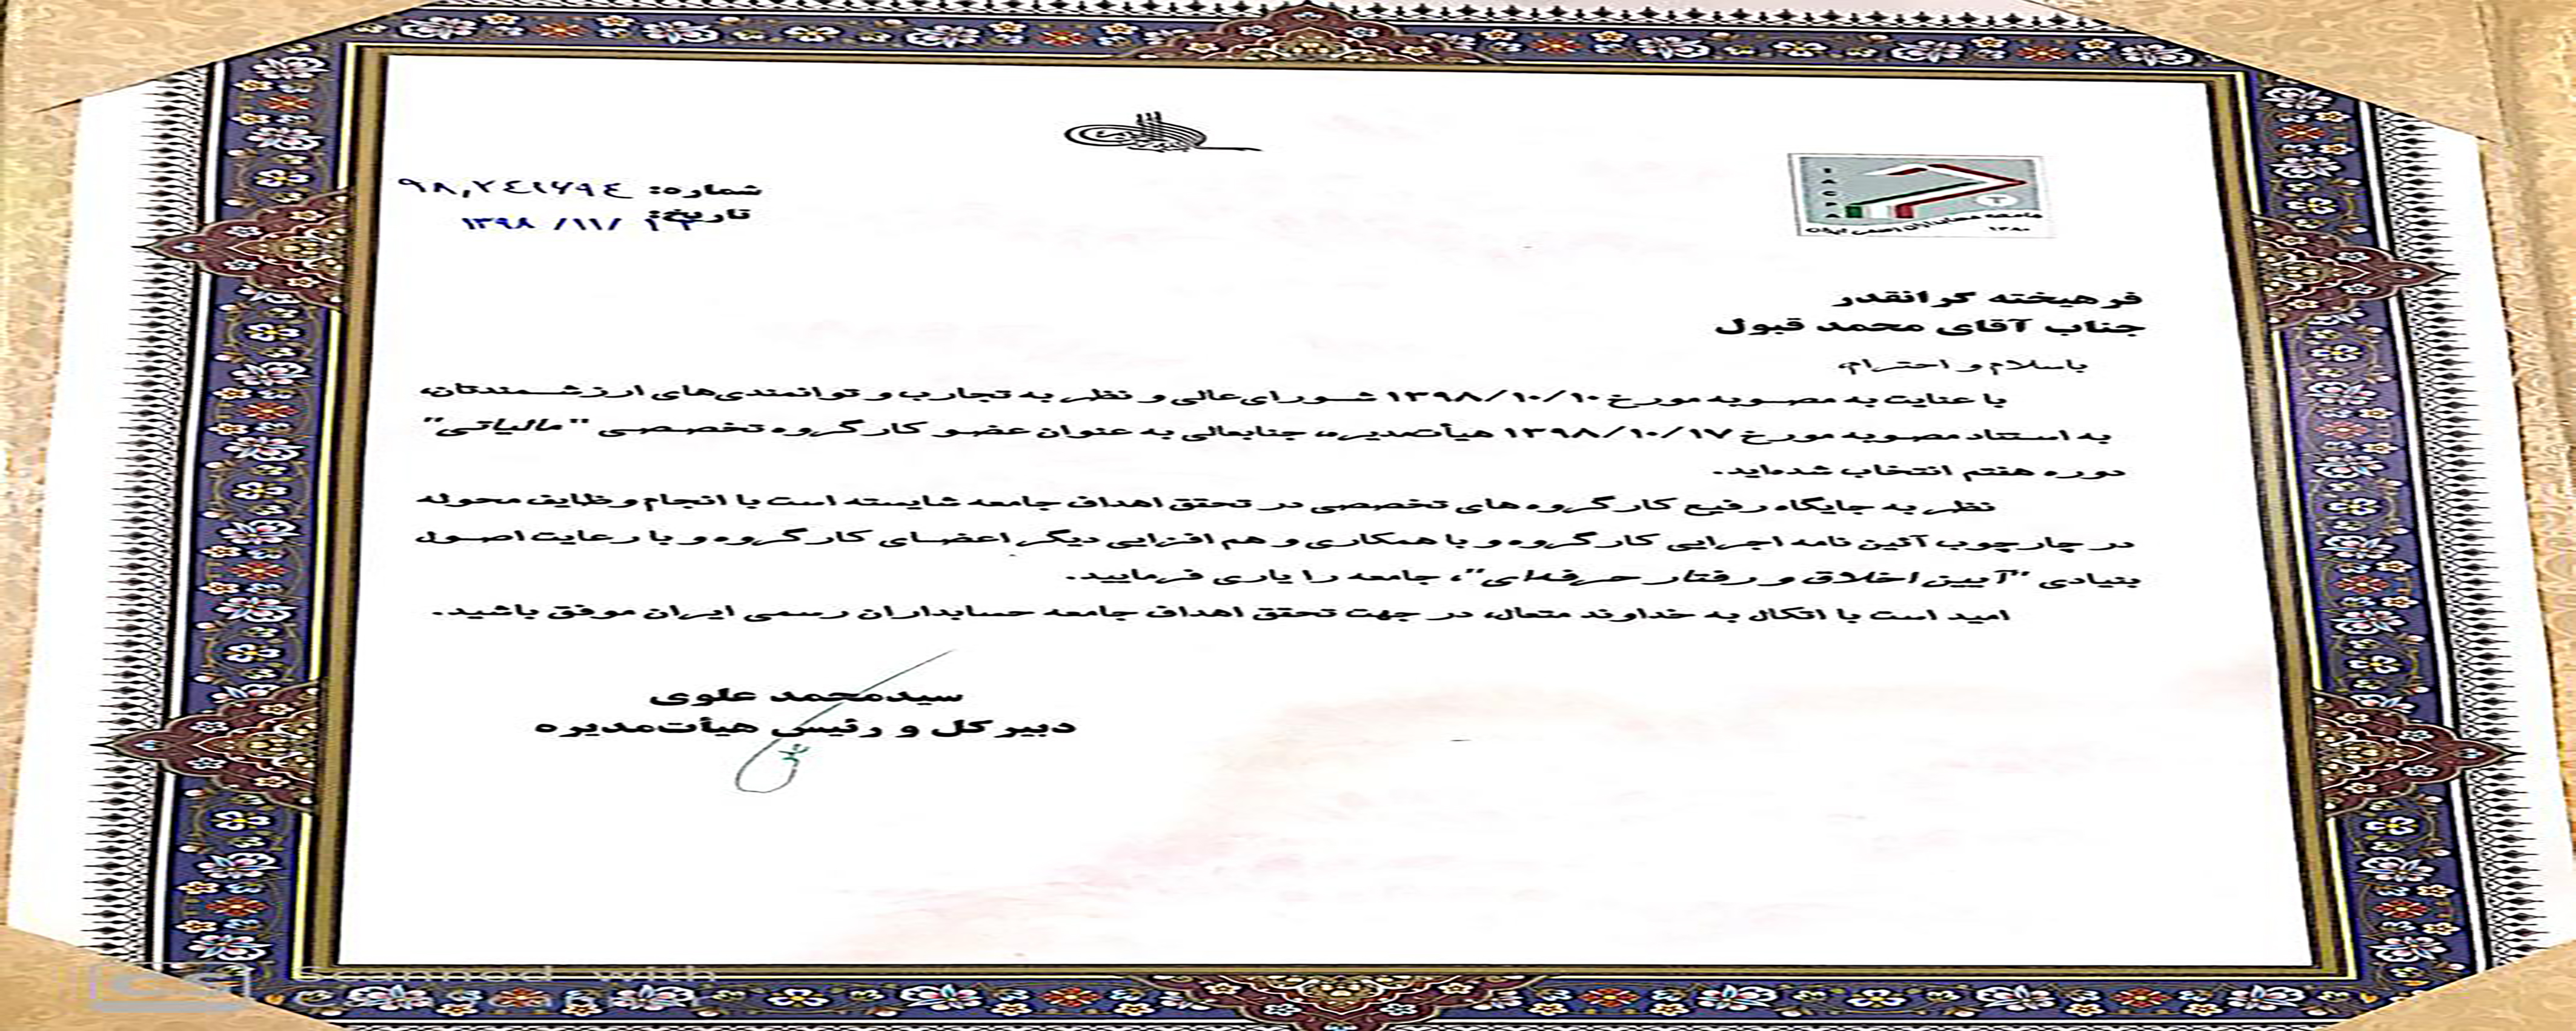 شماره: ۹۸,۲۴۱۶۹۴
تاریخ: ۱۳۹۸/۱۱/
IACPA
جامعه حسابداران رسمی ایران
۱۳۸۰
فرهیخته گرانقدر
جناب آقای محمد قبول
باسلام و احترام،
با عنایت به مصوبه مورخ ۱۳۹۸/۱۰/۱۰ شورای‌عالی و نظر به تجارب و توانمندی‌های ارزشمندتان،
به استناد مصوبه مورخ ۱۳۹۸/۱۰/۱۷ هیأت‌مدیره، جنابعالی به عنوان عضو کارگروه تخصصی "مالیاتی"
دوره هفتم انتخاب شده‌اید.
نظر به جایگاه رفیع کارگروه های تخصصی در تحقق اهداف جامعه شایسته است با انجام وظایف محوله
در چارچوب آئین نامه اجرایی کارگروه و با همکاری و هم افزایی دیگر اعضای کارگروه و با رعایت اصول
بنیادی "آیین اخلاق و رفتار حرفه‌ای"، جامعه را یاری فرمایید.
امید است با اتکال به خداوند متعال، در جهت تحقق اهداف جامعه حسابداران رسمی ایران موفق باشید.
سیدمحمد علوی
دبیرکل و رئیس هیأت‌مدیره
CS Scanned with